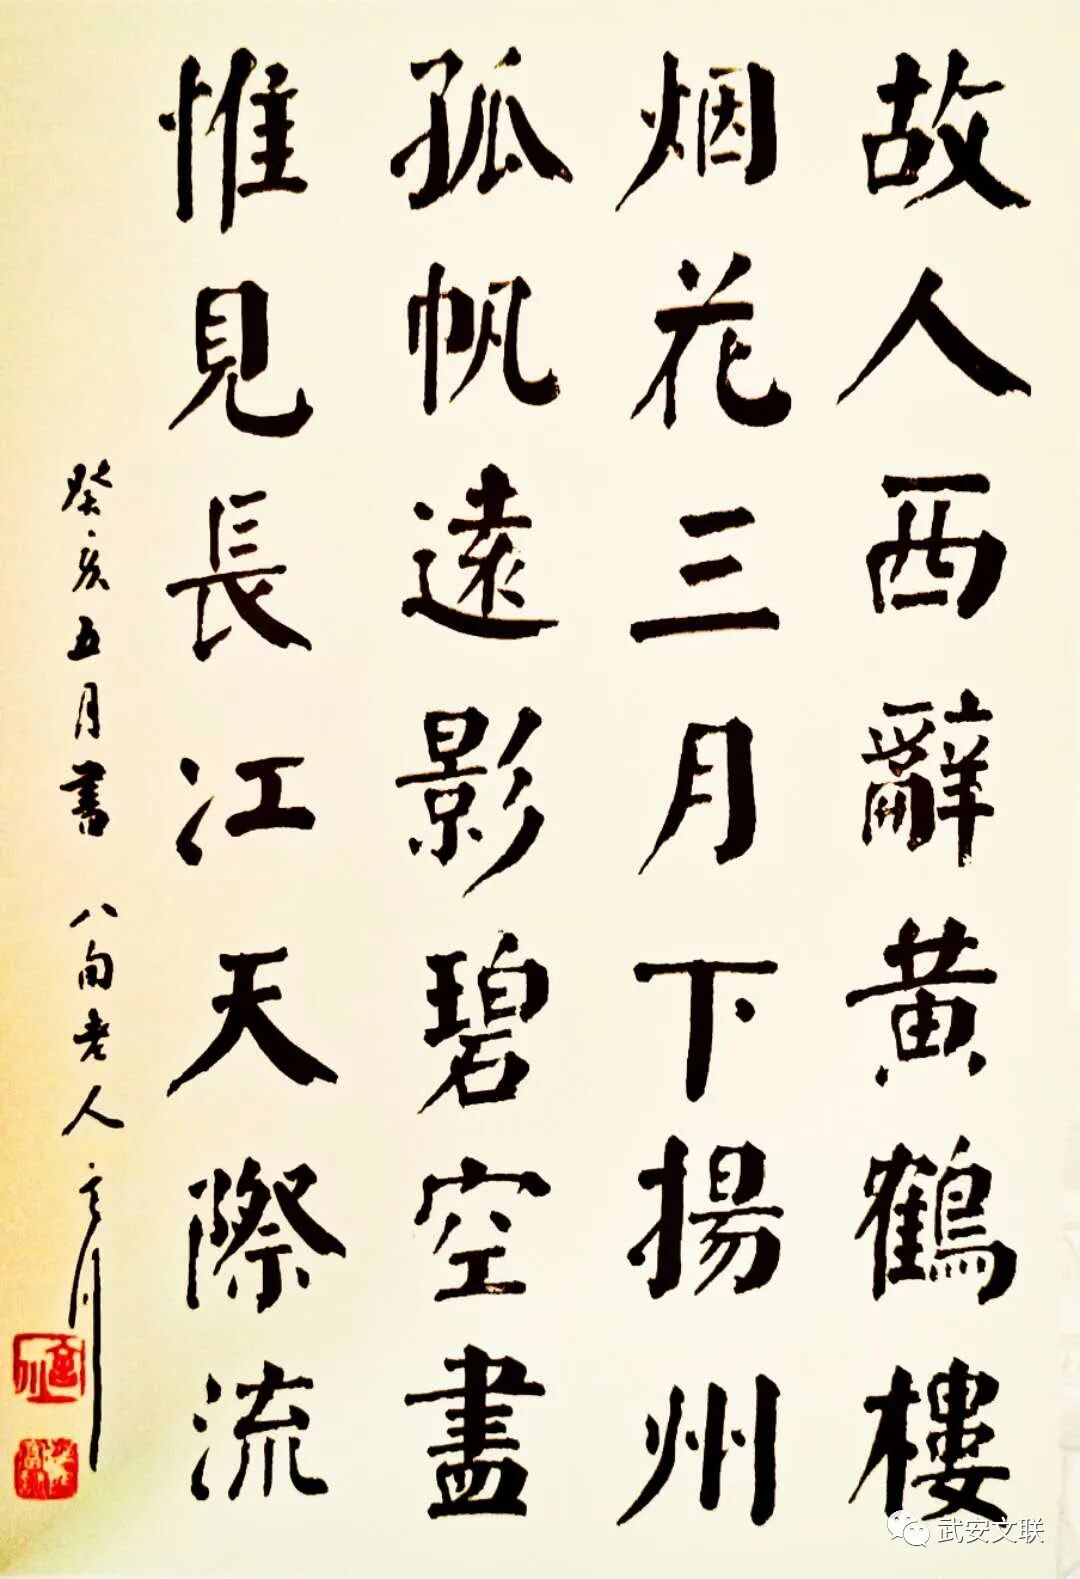 故人西辭黄鶴樓
烟花三月下揚州
孤帆遠影碧空盡
惟見長江天際流
癸亥五月書 八旬老人
武安文联